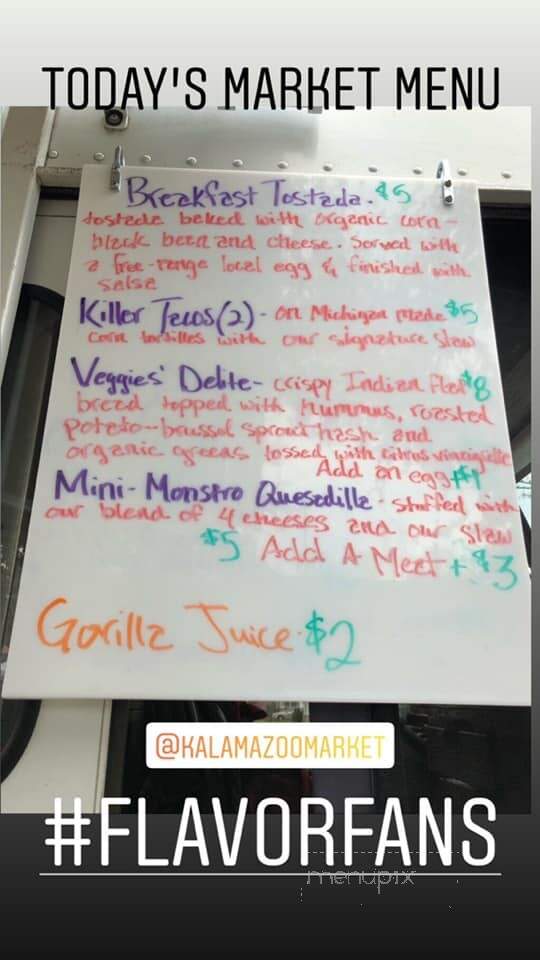 TODAY'S MARKET MENU
Breakfast Tostada. $5
tostada baked with organic corn-
black bean and cheese. Served with
a free-range local egg & finished with
salsa
Killer Tacos(2) - on Michigan made $5
corn tortillas with our signature slaw
Veggies' Delite - crispy Indian flat $8
bread topped with hummus, roasted
potato-brussel sprout hash and
organic greens tossed with citrus vinaigrette
Add an egg +$1
Mini-Monstro Quesadilla - stuffed with
our blend of 4 cheeses and our slaw
$5 Add A Meat + $3
Gorilla Juice. $2
@KALAMAZOOMARKET
#FLAVORFANS
menupix